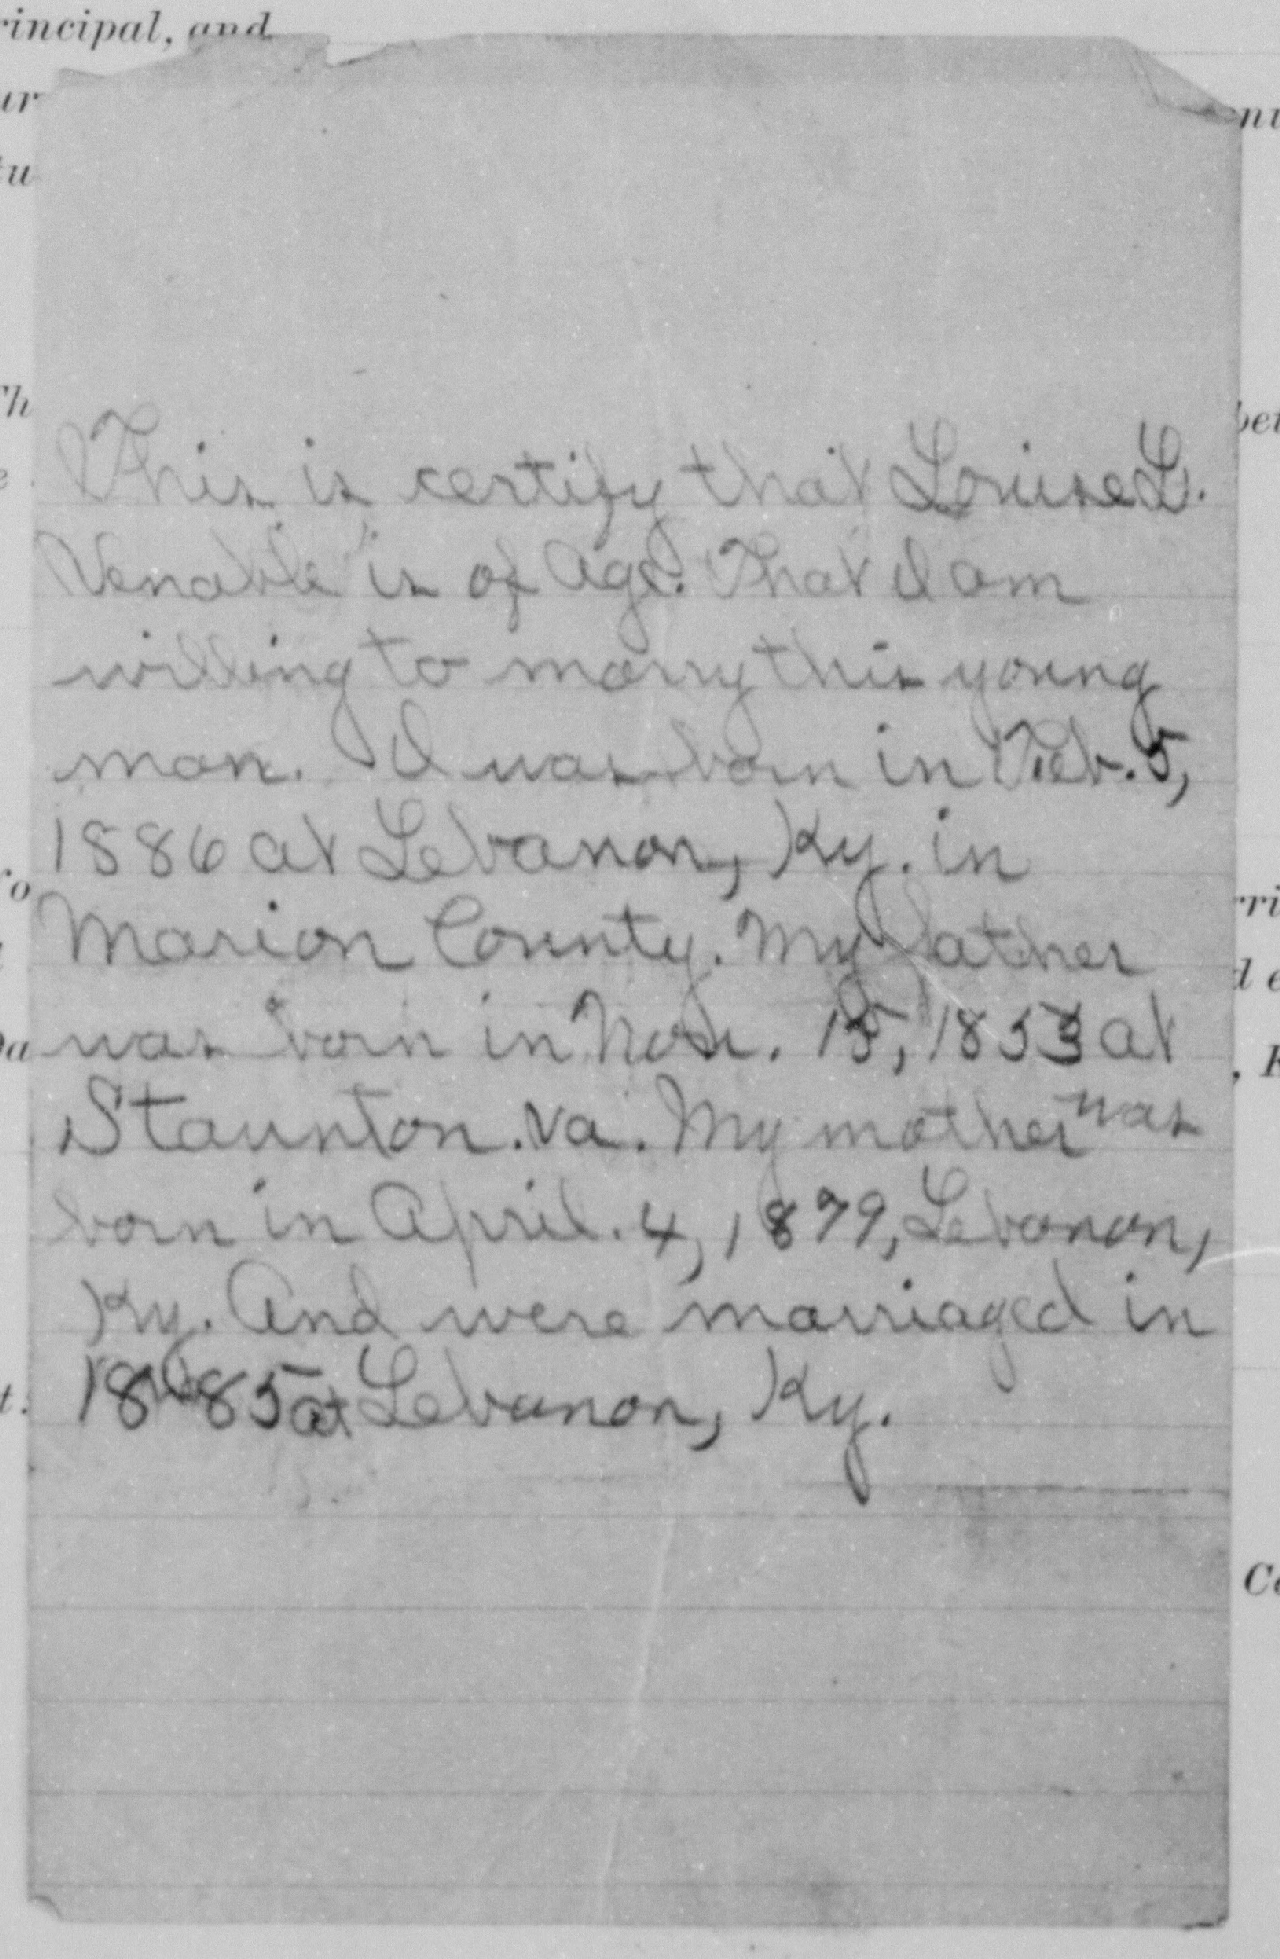 rincipal, and
ur
tu
Th
bet
This is certify that Louise L.
Venable is of age. That I am
willing to marry this young
man. I was born in Feb. 5,
1886 at Lebanon, Ky. in
Marion County. My father
was born in Nov. 15, 1853 at
Staunton. Va. My mother was
born in April. 4, 1879, Lebanon,
Ky. And were marriaged in
1885 at Lebanon, Ky.